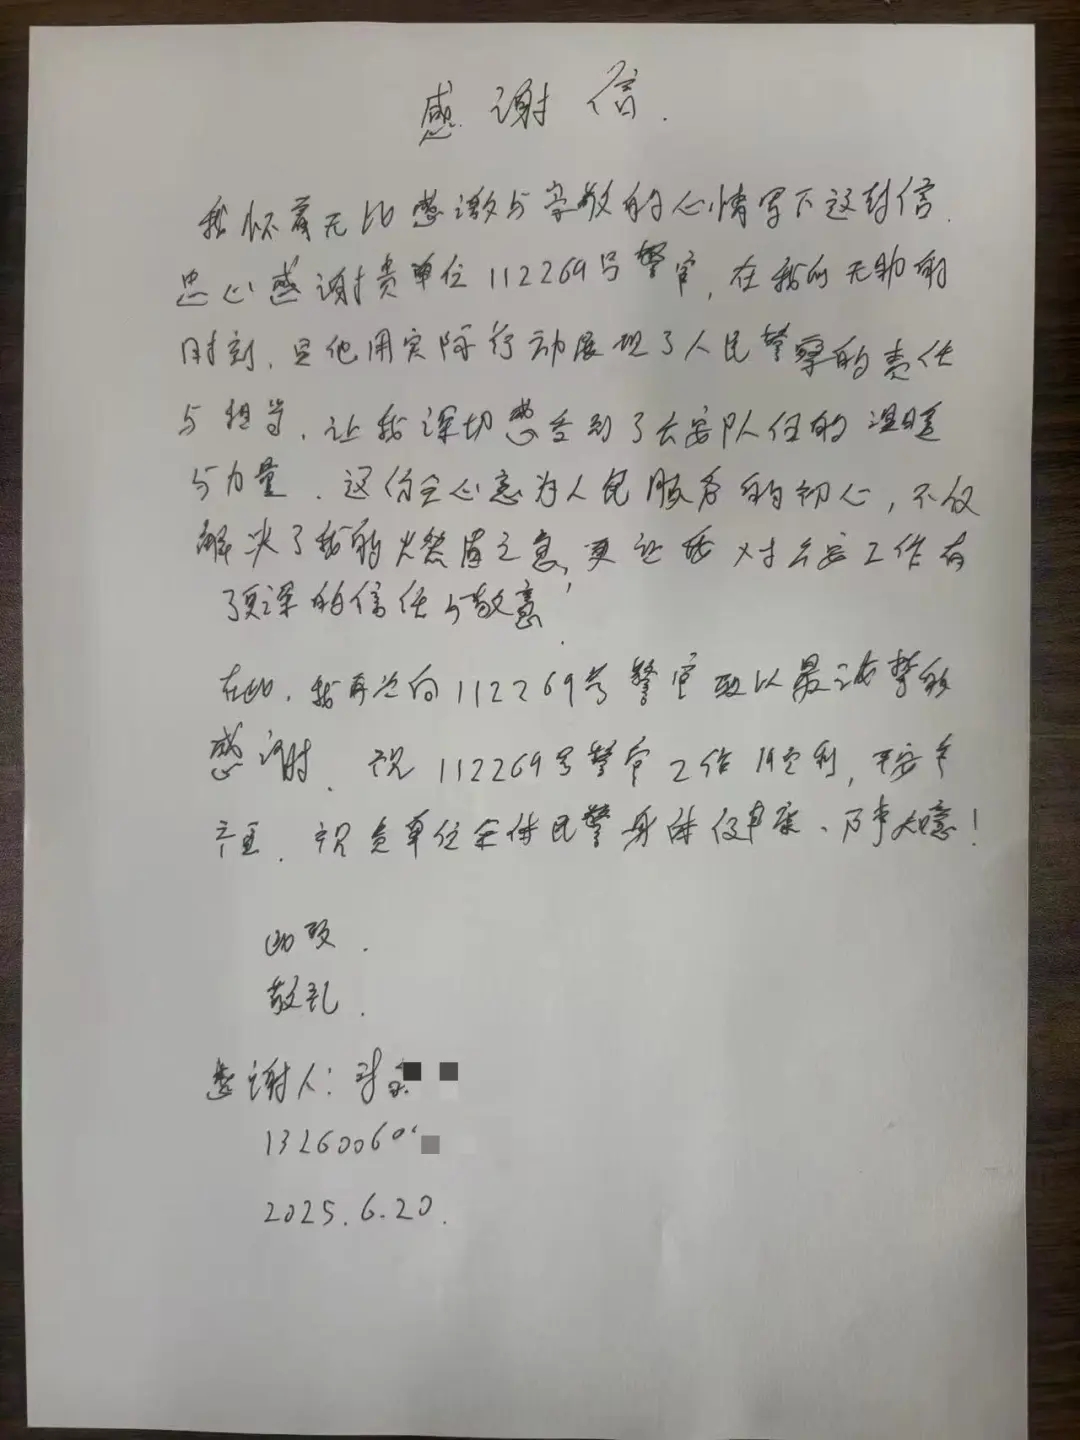 感谢信.
我怀着无比感激与崇敬的心情写下这封信.
忠心感谢贵单位112269号警官,在我的无助的
时刻.是他用实际行动展现了人民警察的责任
与担当.让我深切感受到了公安队伍的温暖
与力量.这份全心意为人民服务的初心,不仅
解决了我的火燃眉之急,更让我对公安工作有
了更深的信任与敬意.
在此.我再次向112269号警官致以最诚挚的
感谢.祝112269号警官工作顺利,平安
祝贵单位全体民警身体健康、万事如意!
此致.
敬礼.
感谢人:
13260060
2025.6.20.